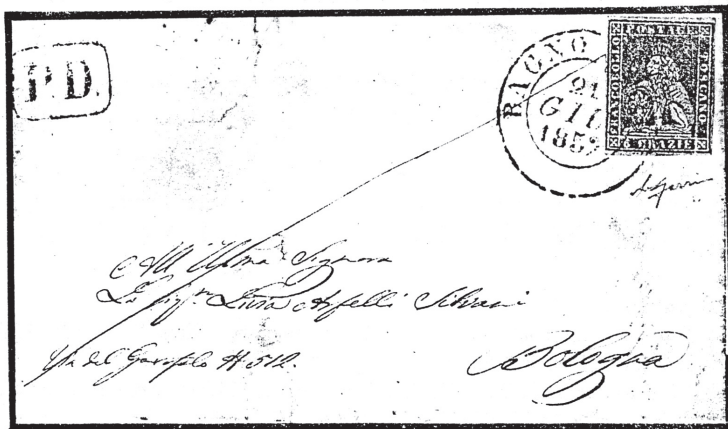 P.D.
BAGNO
21
GIU
185
FRANCOBOLLO
POSTALE
TOSCANO
6 CRAZIE
All' Illma Signora
La Sigra Luisa Arfelli Silvani
Via del Garofolo N 512.
Bologna